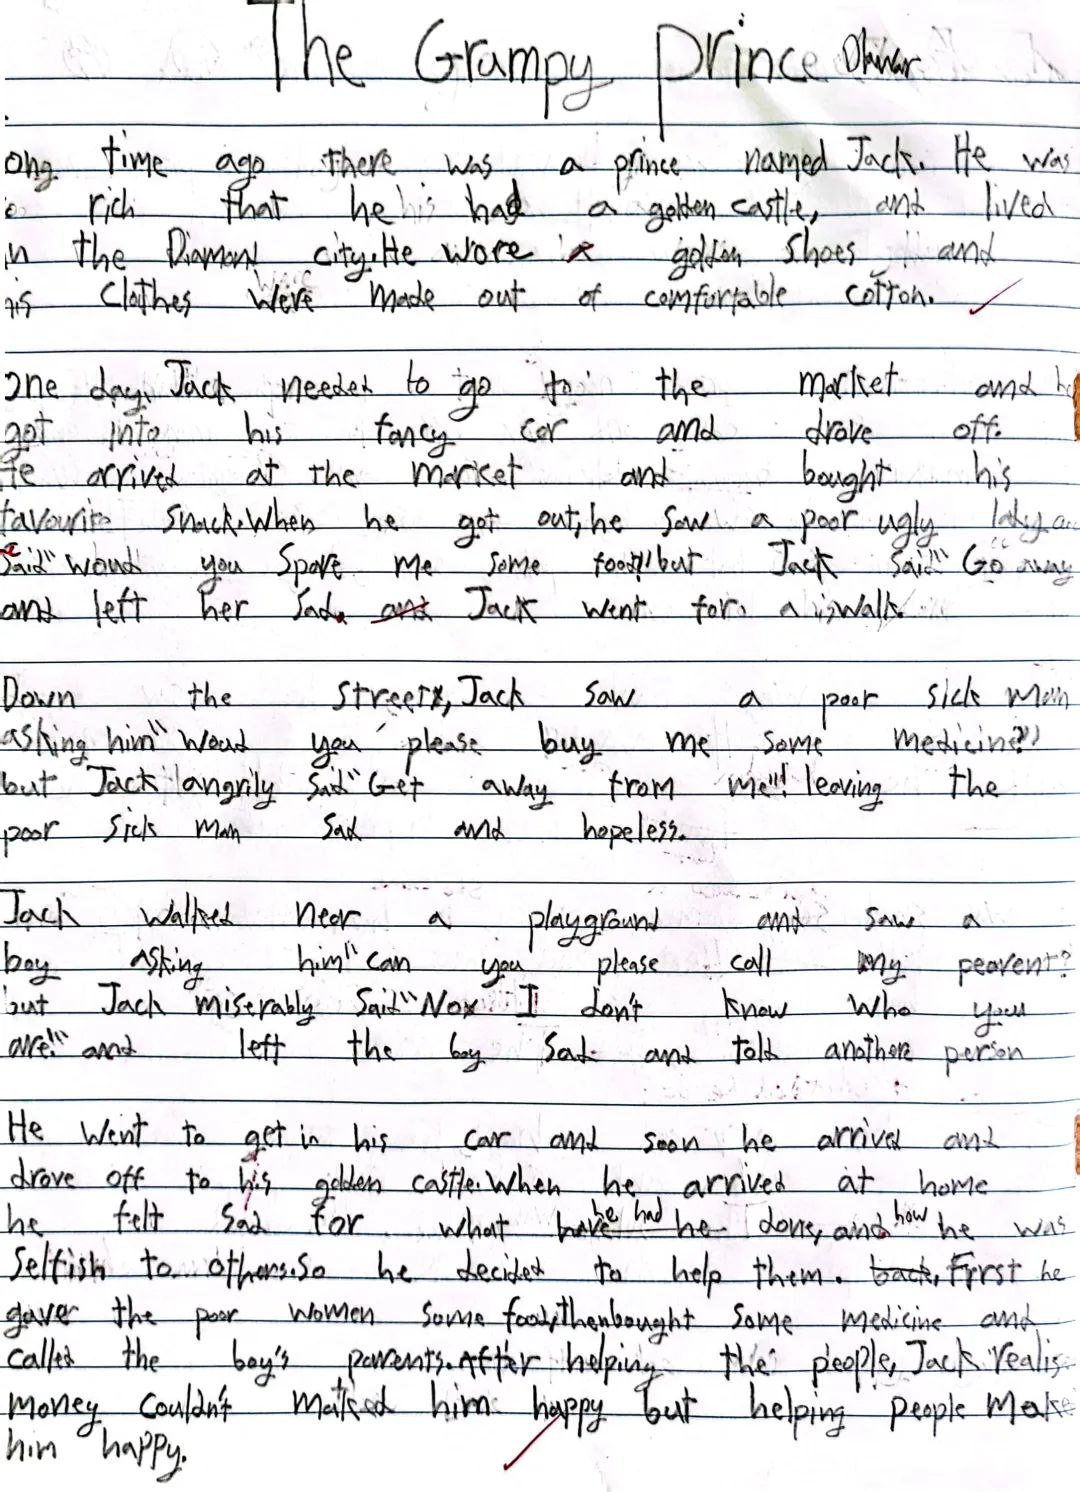 The Grampy prince
ong time ago there was a prince named Jack. He was
rich that he had a golden castle, and lived
in the Diamond city. He wore golden shoes and
his Clothes were made out of comfurtable cotton.
One day, Jack needed to go to the market and
got into his fancy car and drove off.
He arrived at the market and bought his
favourite snack. When he got out, he saw a poor ugly lady
Said "woud you spare me some food" but Jack said "Go away
and left her sad. Jack went for a walk.
Down the street, Jack saw a poor sick man
asking him "woud you please buy me some medicine?"
but Jack angrily said "Get away from me"! leaving the
poor sick man sad and hopeless.
Jack walked near a playground and saw a
boy asking him "can you please call my peavent?
but Jack miserably said "No I don't know who you
are!" and left the boy sad and told another person
He went to get in his car and soon he arrived and
drove off to his golden castle. When he arrived at home
he felt sad for what he had done, and how he was
selfish to others. So he decided to help them. back, First he
gaver the poor women some food, then bought some medicine and
called the boy's parents. After helping the people, Jack realis
money couldn't maked him happy but helping people make
him happy.